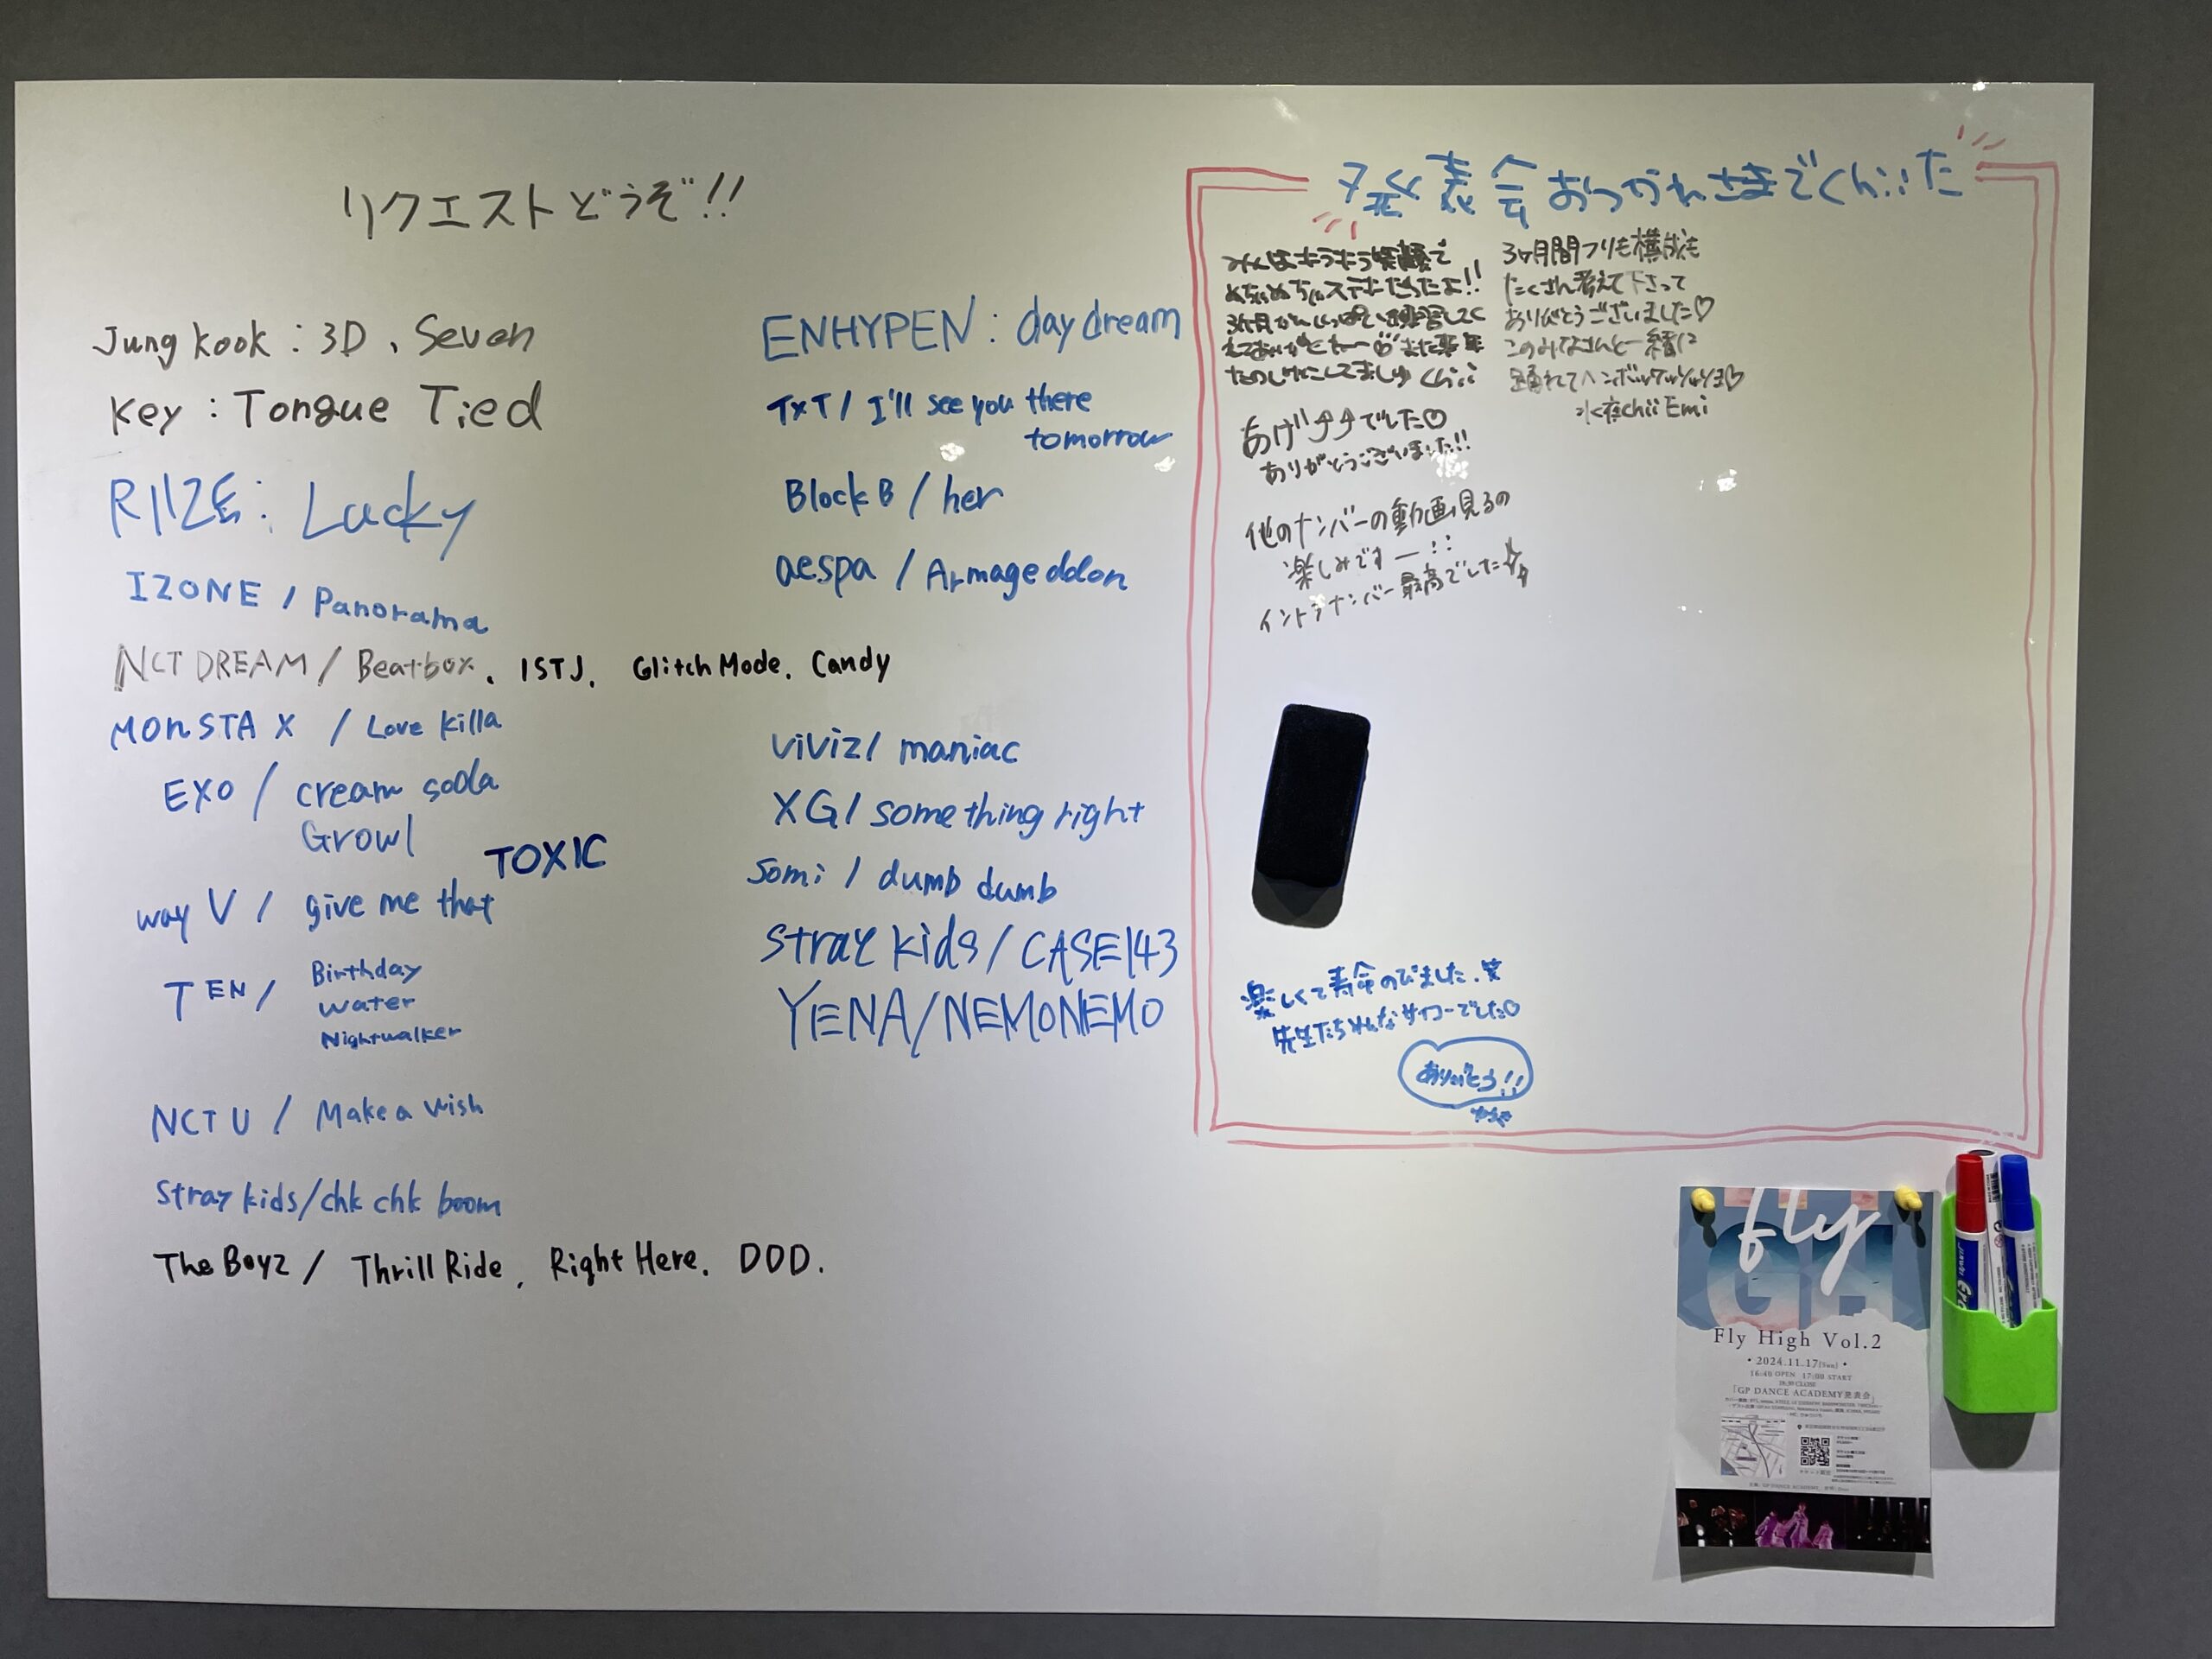 リクエストどうぞ!!
Jung kook : 3D 、Seven
Key : Tongue Tied
RIIZE : Lucky
IZONE / Panorama
NCT DREAM / Beatbox、ISTJ、Glitch Mode、Candy
MONSTA X / Love killa
EXO / cream soda
Growl
TOXIC
way V / give me that
TEN / Birthday
water
Nightwalker
NCT U / Make a wish
Stray kids/chk chk boom
The Boyz / Thrill Ride、Right Here、DDD.
ENHYPEN : daydream
TXT / I'll see you there
tomorrow
Block B / her
aespa / Armageddon
ViViz / maniac
XG / something right
Somi / dumb dumb
Stray kids / CASE143
YENA/NEMONEMO
発表会おつかれさまでくhiiた
みんなキラキラ笑顔で
めちゃめちゃステキだったよ!!
3ヶ月
くhii
3ヶ月間フリも構成も
たくさん考えて下さって
ありがとうございました♡
このみなさんと一緒に
踊れて
水夜chii Emi
あげチチでした♡
ありがとうございました!!
他のナンバーの動画見るの
楽しみですー!!
イントラナンバー最高でした☆
楽しくて寿命のびました.笑
先生たちみんなサイコーでした♡
ありがとう!!
fly
Fly High Vol.2
• 2024.11.17(Sun) •
16:40 OPEN 17:00 START
「GP DANCE ACADEMY発表会」